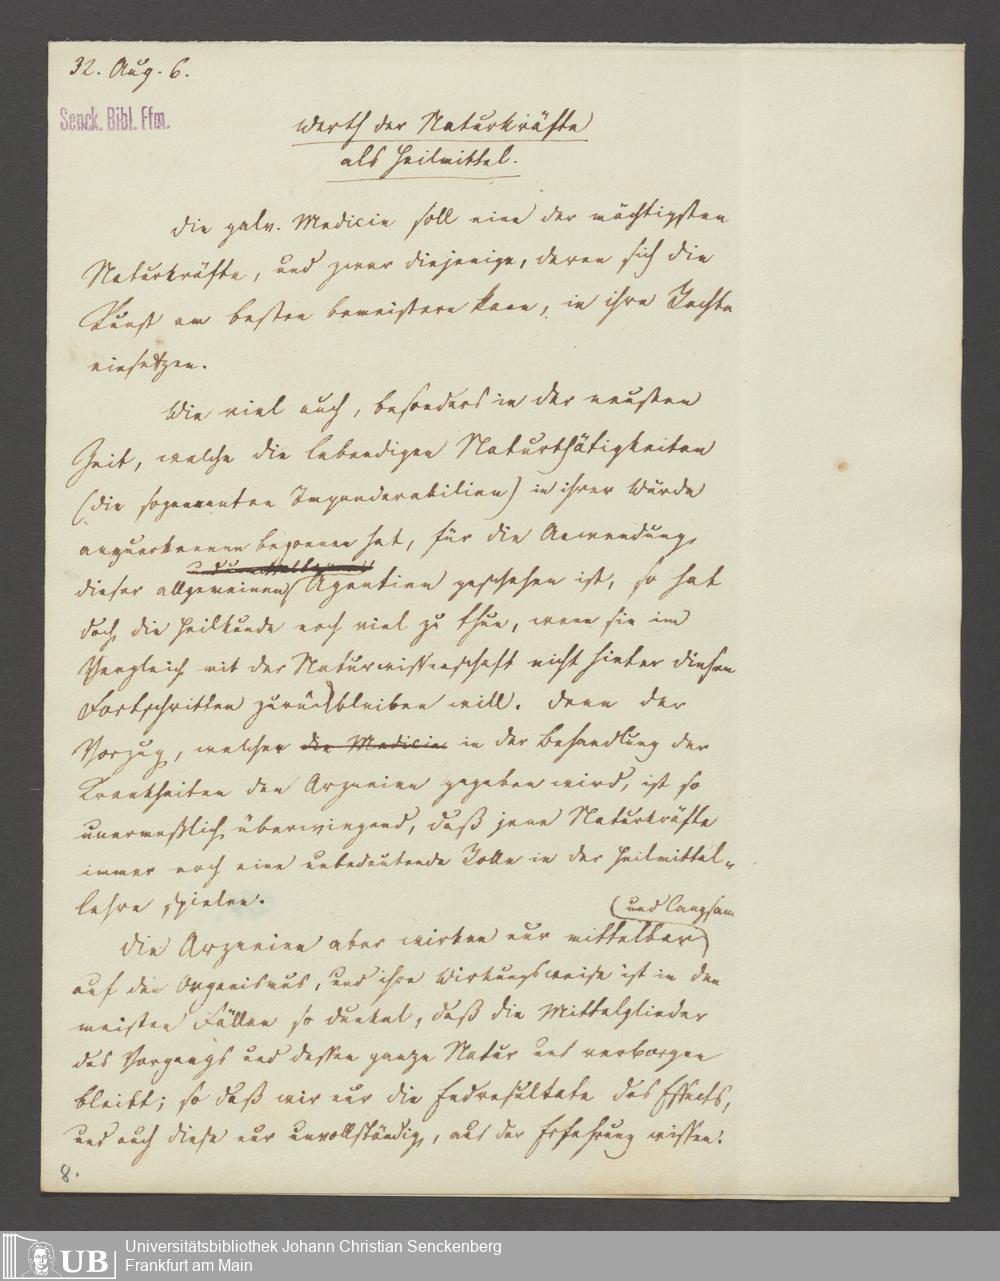 32. Aug. 6.
Senck. Bibl. Ffm.
Werth der Naturkräfte
als Heilmittel.
Die galv. Medicin soll eine der mächtigsten
Naturkräfte, und zwar diejenige, deren sich die
Kunst am besten bemeistern kann, in ihre Rechte
einsetzen.
Wie viel auch, besonders in der neusten
Zeit, welche die lebendigen Naturthätigkeiten
(die sogenannten Imponderabilien) in ihrer Würde
anzuerkennen begonnen hat, für die Anwendung
dieser allgemeinen Agentien geschehen ist, so hat
doch die Heilkunde noch viel zu thun, wenn sie im
Vergleich mit der Naturwissenschaft nicht hinter diesen
Fortschritten zurückbleiben will. Denn der
Vorzug, welcher die Medicin in der Behandlung der
Krankheiten den Arzneien gegeben wird, ist so
unermeßlich überwiegend, daß jene Naturkräfte
immer noch eine unbedeutende Rolle in der Heilmittel-
lehre spielen.
und langsam
Die Arzneien aber wirken nur mittelbar
auf den Organismus, und ihre Wirkungsweise ist in den
meisten Fällen so dunkel, daß die Mittelglieder
des Vorgangs und dessen ganze Natur uns verborgen
bleibt; so daß wir nur die Endresultate des Effects,
und auch diese nur unvollständig, aus der Erfahrung wissen.
8.
UB
Universitätsbibliothek Johann Christian Senckenberg
Frankfurt am Main